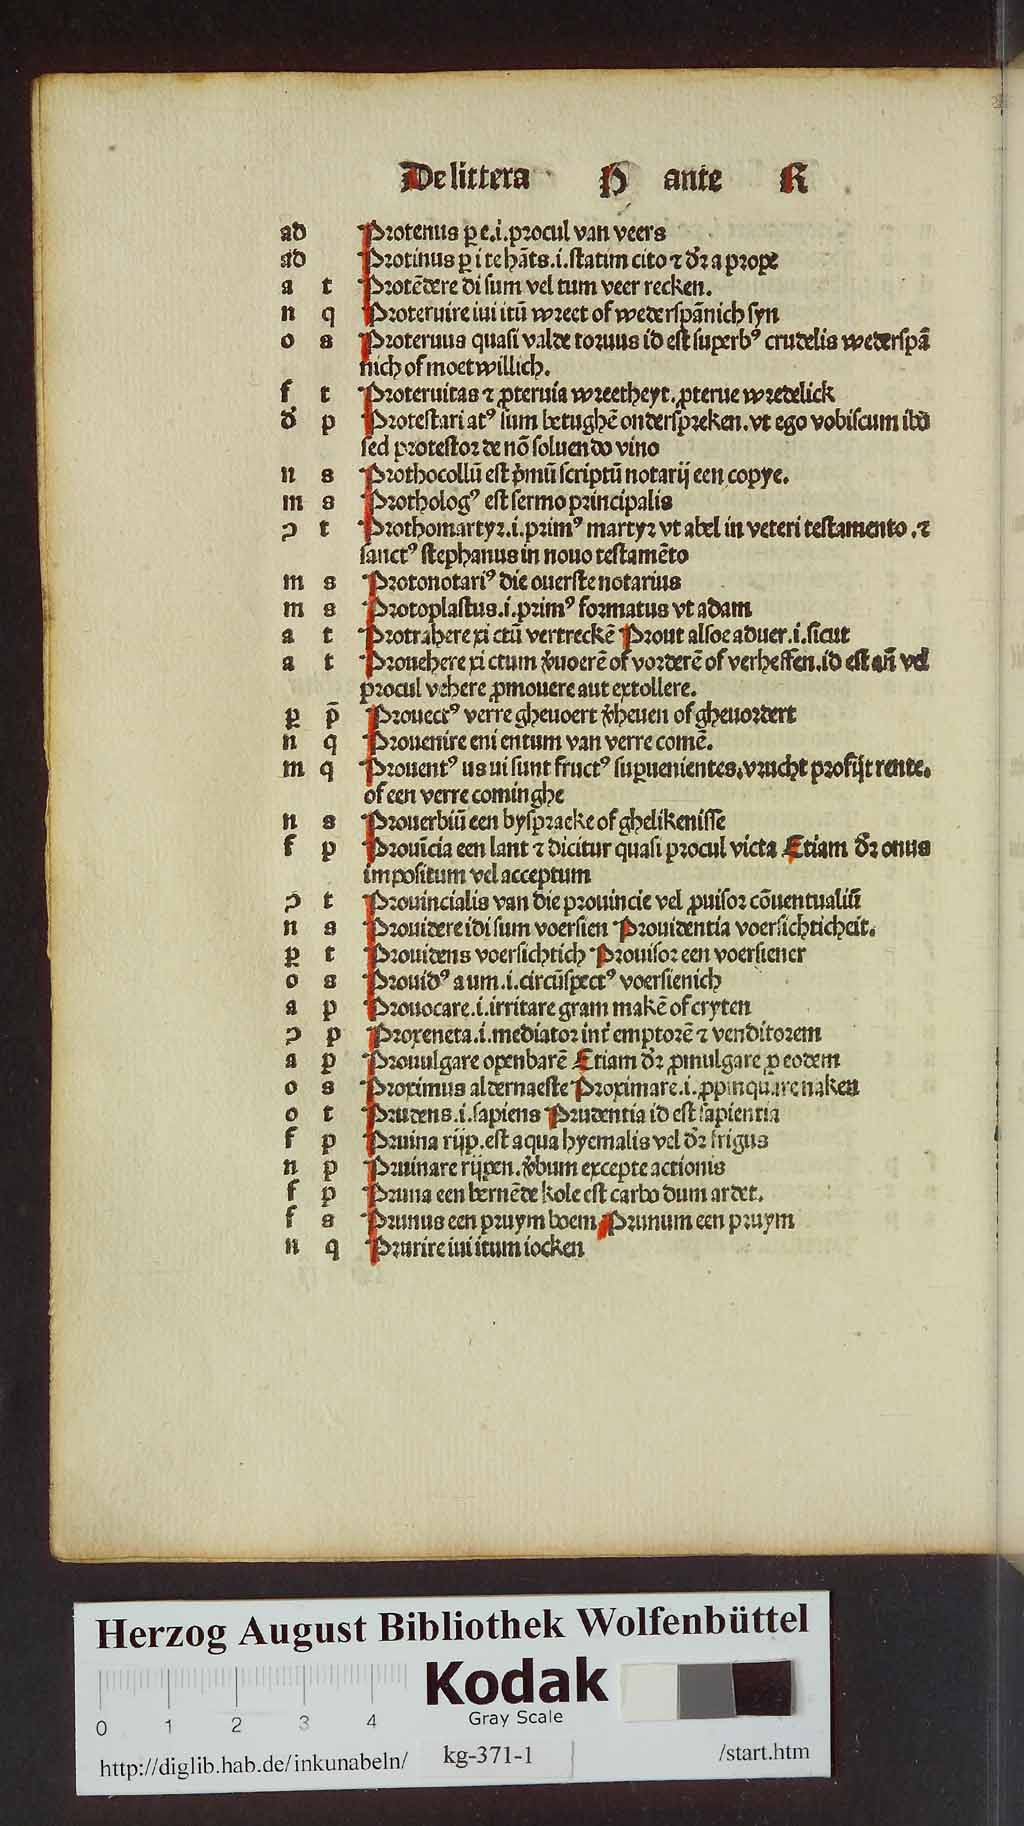 De littera P ante R
ad Protenus ꝑ e .i. procul van veers
ad Protinus ꝑ i te hāts .i. statim cito ⁊ dr̄ a prope
a t Protēdere di sum vel tum veer recken.
n q Proteruire iui itū wreet of wederspānich syn
o s Proteruus quasi valde toruus id est superbꝰ crudelis wederspā
nich of moetwillich.
f t Proteruitas ⁊ ꝓteruia wreetheyt. ꝓterue wredelick
dr̄ p Protestari atꝰ sum betughē onderspreken. vt ego vobiscum ibo
sed protestor de nō soluendo vino
n s Prothocollū est pͥmū scriptū notarij een copye.
m s Prothologꝰ est sermo principalis
ꝯ t Prothomartyr .i. primꝰ martyr vt abel in veteri testamento. ⁊
sanctꝰ stephanus in nouo testamēto
m s Protonotariꝰ die ouerste notarius
m s Protoplastus .i. primꝰ formatus vt adam
a t Protrahere xi ctū vertreckē Prout alsoe aduer .i. sicut
a t Prouehere xi ctum v̄uoerē of vorderē of verheffen. id est an̄ vel
procul vehere ꝓmouere aut extollere.
ꝑ p̄ Prouectꝰ verre gheuoert v̄heuen of gheuordert
n q Prouenire eni entum van verre comē.
m q Prouentꝰ us ui sunt fructꝰ suꝑuenientes. vrucht profijt rente.
of een verre cominghe
n s Prouerbiū een byspraeke of ghelikenisse
f p Prouīcia een lant ⁊ dicitur quasi procul victa Etiam dr̄ onus
impositum vel acceptum
ꝯ t Prouincialis van die prouincie vel ꝓuisor cōuentualiū
n s Prouidere idi sum voersien Prouidentia voersichticheit.
ꝑ t Prouidens voersichtich Prouisor een voersiener
o s Prouidꝰ a um .i. circūspectꝰ voersienich
a p Prouocare .i. irritare gram makē of cryten
ꝯ p Proxeneta .i. mediator int̄ emptorē ⁊ venditorem
a p Prouulgare openbarē Etiam dr̄ ꝓmulgare ꝑ eodem
o s Proximus aldernaeste Proximare .i. ꝓpinquare naken
o t Prudens .i. sapiens Prudentia id est sapientia
f p Pruina rijp. est aqua hyemalis vel dr̄ frigus
n p Pruinare rijpen. v̄bum excepte actionis
f p Pruna een bernēde kole est carbo dum ardet.
f s Prunus een pruym boem Prunum een pruym
n q Prurire iui itum iocken
Herzog August Bibliothek Wolfenbüttel
Kodak
Gray Scale
0 1 2 3 4
http://diglib.hab.de/inkunabeln/ kg-371-1 /start.htm